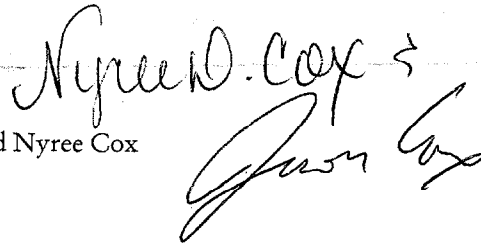 Nyree D. Cox &
d Nyree Cox
Jason Cox